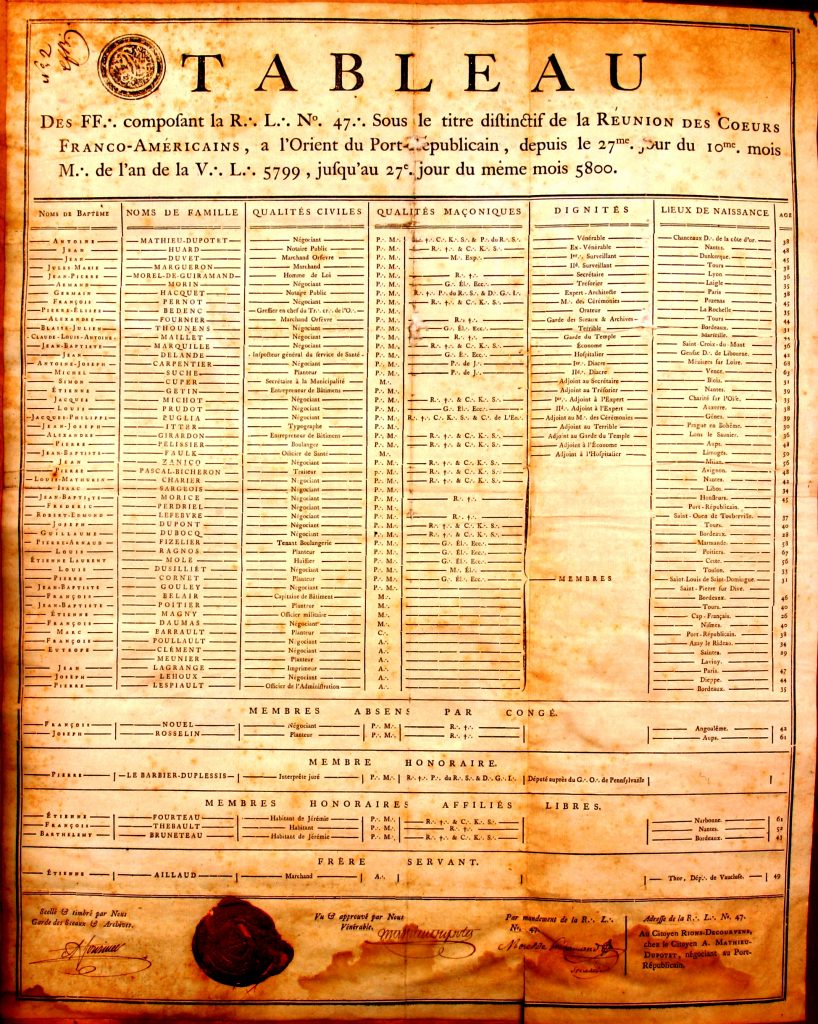 TABLEAU
DES FF∴ compoſant la R∴ L∴ Nº. 47∴ Sous le titre diſtinctif de la RÉUNION DES COEURS
FRANCO-AMÉRICAINS, a l'Orient du Port-Républicain, depuis le 27me. jour du 10me. mois
M∴ de l'an de la V∴ L∴ 5799, juſqu'au 27e. jour du même mois 5800.
NOMS DE BAPTÊME NOMS DE FAMILLE QUALITÉS CIVILES QUALITÉS MAÇONIQUES DIGNITÉS LIEUX DE NAISSANCE AGE
ANTOINE MATHIEU-DUPOTET Négociant P∴ M∴ R∴ †∴ C∴ K∴ S∴ & P∴ du R∴ S∴ Vénérable Chanceaux Dt. de la côte d'or. 38
JEAN HUARD Notaire Public P∴ M∴ R∴ †∴ & C∴ K∴ S∴ Ex-Vénérable Nantes. 48
JEAN DUVET Marchand Orfevre P∴ M∴ M∴ Exp∴ Ier. Surveillant Dunkerque. 45
JULES MARIE MARGUERON Marchand P∴ M∴ IId. Surveillant Tours 38
JEAN-PIERRE MOREL-DE-GUIRAMAND Homme de Loi P∴ M∴ R∴ †∴ Secrétaire Lyon 36
ARMAND MORIN Négociant P∴ M∴ G∴ Él∴ Ecc∴ Tréſorier Laigle 35
GERMAIN HACQUET Notaire Public P∴ M∴ R∴ †∴ P∴ du R∴ S∴ & D∴ G∴ I∴ Expert-Architecte Paris 38
FRANÇOIS PERNOT Négociant P∴ M∴ R∴ †∴ & C∴ K∴ S∴ M∴ des Cérémonies Pezenas 45
PIERRE-ÉLISÉE BEDENC Greffier en chef du Tr∴ cr∴ de l'O∴ P∴ M∴ Orateur La Rochelle 35
ALEXANDRE FOURNIER Marchand Orfevre P∴ M∴ R∴ †∴ Garde des Sceaux & Archives Tours 44
BLAISE-JULIEN THOUNENS Négociant P∴ M∴ G∴ Él∴ Ecc∴ Terrible Bordeaux. 31
CLAUDE-LOUIS-ANTOINE MAILLET Négociant P∴ M∴ Garde du Temple Marſeille. 44
JEAN-BAPTISTE MARQUILLE Négociant P∴ M∴ R∴ †∴ & C∴ K∴ S∴ Économe Saint Croix du Mont 56
JEAN DELANDE Inſpecteur général du ſervice de Santé P∴ M∴ G∴ É∴ Ecc∴ Hoſpitalier Genſac D∴ de Libourne. 42
ANTOINE-JOSEPH CARPENTIER Négociant P∴ M∴ P∴ de J∴ Ier. Diacre Meziers ſur Loire. 68
MICHEL SUCHE Planteur P∴ M∴ P∴ de J∴ IId. Diacre Vence. 63
SIMON CUPER Secrétaire à la Municipalité M∴ Adjoint au Secrétaire Blois. 31
ÉTIENNE GETIN Entrepreneur de Bâtimens P∴ M∴ Adjoint au Tréſorier Nantes. 39
JACQUES MICHOT Négociant P∴ M∴ R∴ †∴ & C∴ K∴ S∴ Ier. Adjoint à l'Expert Charité ſur l'Oiſe. 35
LOUIS PRUDOT Négociant P∴ M∴ G∴ Él∴ Ecc∴ IId. Adjoint à l'Expert Auxerre. 38
JACQUES-PHILIPPE PUGLIA Négociant P∴ M∴ R∴ †∴ C∴ K∴ S∴ & C∴ de L'En∴ Adjoint au M∴ des Cérémonies Gênes. 39
JEAN-JOSEPH ITTER Typographe P∴ M∴ Adjoint au Terrible Prague en Bohême. 30
ALEXANDRE GIRARDON Entrepreneur de Bâtiment P∴ M∴ R∴ †∴ & C∴ K∴ S∴ Adjoint au Garde du Temple Lons le Saunier. 36
PIERRE PELISSIER Boulanger P∴ M∴ R∴ †∴ & C∴ K∴ S∴ Adjoint à l'Économe Aups. 48
JEAN-BAPTISTE FAULK Officier de Santé M∴ Adjoint à l'Hoſpitalier Limoges. 50
JEAN ZANICO Négociant P∴ M∴ R∴ †∴ & C∴ K∴ S∴ Milan. 56
PIERRE PASCAL-BICHERON Traiteur P∴ M∴ R∴ †∴ & C∴ K∴ S∴ Avignon. 48
LOUIS-MATHURIN CHARIER Négociant P∴ M∴ R∴ †∴ & C∴ K∴ S∴ Nantes. 42
ISAAC SARGEOIS Négociant P∴ M∴ Libos. 34
JEAN-BAPTISTE MORICE Négociant P∴ M∴ R∴ †∴ Honfleurs. 45
FREDERIC PERDRIEL Négociant P∴ M∴ Port-Républicain.
ROBERT-EDMOND LEFEBVRE Négociant P∴ M∴ R∴ †∴ Saint-Ouen de Touberville. 37
JOSEPH DUPONT Négociant P∴ M∴ R∴ †∴ & C∴ K∴ S∴ Tours. 40
GUILLAUME DUBOCQ Négociant P∴ M∴ R∴ †∴ & C∴ K∴ S∴ Bordeaux. 28
PIERRE-ARNAUD FIZELIER Tenant Boulangerie P∴ M∴ G∴ Él∴ Ecc∴ Marmande. 58
LOUIS RAGNOS Planteur P∴ M∴ G∴ Él∴ Ecc∴ Poitiers. 67
ÉTIENNE LAURENT MOLE Huiſſier P∴ M∴ G∴ Él∴ Ecc∴ Cette. 56
LOUIS DUSILLIÉT Négociant P∴ M∴ M∴ Él∴ Toulon. 33
PIERRE CORNET Planteur P∴ M∴ G∴ Él∴ Ecc∴ MEMBRES Saint-Louis de Saint-Domingue. 31
JEAN-BAPTISTE GOULEY Négociant P∴ M∴ Saint-Pierre ſur Dive.
FRANÇOIS BELAIR Capitaine de Bâtiment M∴ Bordeaux. 46
JEAN-BAPTISTE POITIER Planteur M∴ Tours. 40
ÉTIENNE MAGNY Officier militaire M∴ Cap-Français. 26
FRANÇOIS DAUMAS Négociant M∴ Niſmes. 40
MARC BARRAULT Planteur C∴ Port-Républicain. 38
FRANÇOIS POULLAULT Négociant A∴ Azay le Rideau. 34
EUTROPE CLÉMENT Négociant A∴ Saintes. 29
MEUNIER Planteur A∴ Laviny.
JEAN LAGRANGE Imprimeur A∴ Paris. 47
JOSEPH LEHOUX Négociant A∴ Dieppe. 44
PIERRE LESPIAULT Officier de l'Adminiſtration A∴ Bordeaux. 35
MEMBRES ABSENS PAR CONGÉ.
FRANÇOIS NOUEL Négociant P∴ M∴ R∴ †∴ Angoulême. 42
JOSEPH ROSSELIN Planteur P∴ M∴ R∴ †∴ Aups. 61
MEMBRE HONORAIRE.
PIERRE LE BARBIER-DUPLESSIS Interprête juré P∴ M∴ R∴ †∴ P∴ du R∴ S∴ & D∴ G∴ I∴ Député auprès du G∴ O∴ de Pennſylvanie
MEMBRES HONORAIRES AFFILIÉS LIBRES.
ÉTIENNE FOURTEAU Habitant de Jérémie P∴ M∴ R∴ †∴ & C∴ K∴ S∴ Narbonne. 61
FRANÇOIS THEBAULT Habitant P∴ M∴ R∴ †∴ Nantes. 52
BARTHELEMY BRUNETEAU Habitant de Jérémie P∴ M∴ R∴ †∴ & C∴ K∴ S∴ Bordeaux. 43
FRÈRE SERVANT.
ÉTIENNE AILLAUD Marchand A∴ Thor, Dép∴ de Vaucluſe. 49
Scellé & timbré par Nous
Garde des Sceaux & Archives.
Vu & approuvé par Nous
Vénérable.
Par mandement de la R∴ L∴
Nº. 47
Adreſſe de la R∴ L∴ Nº. 47.
Au Citoyen RIONS-DECOURVENS,
chez le Citoyen A. MATHIEU-
DUPOTET, négociant au Port-
Républicain.